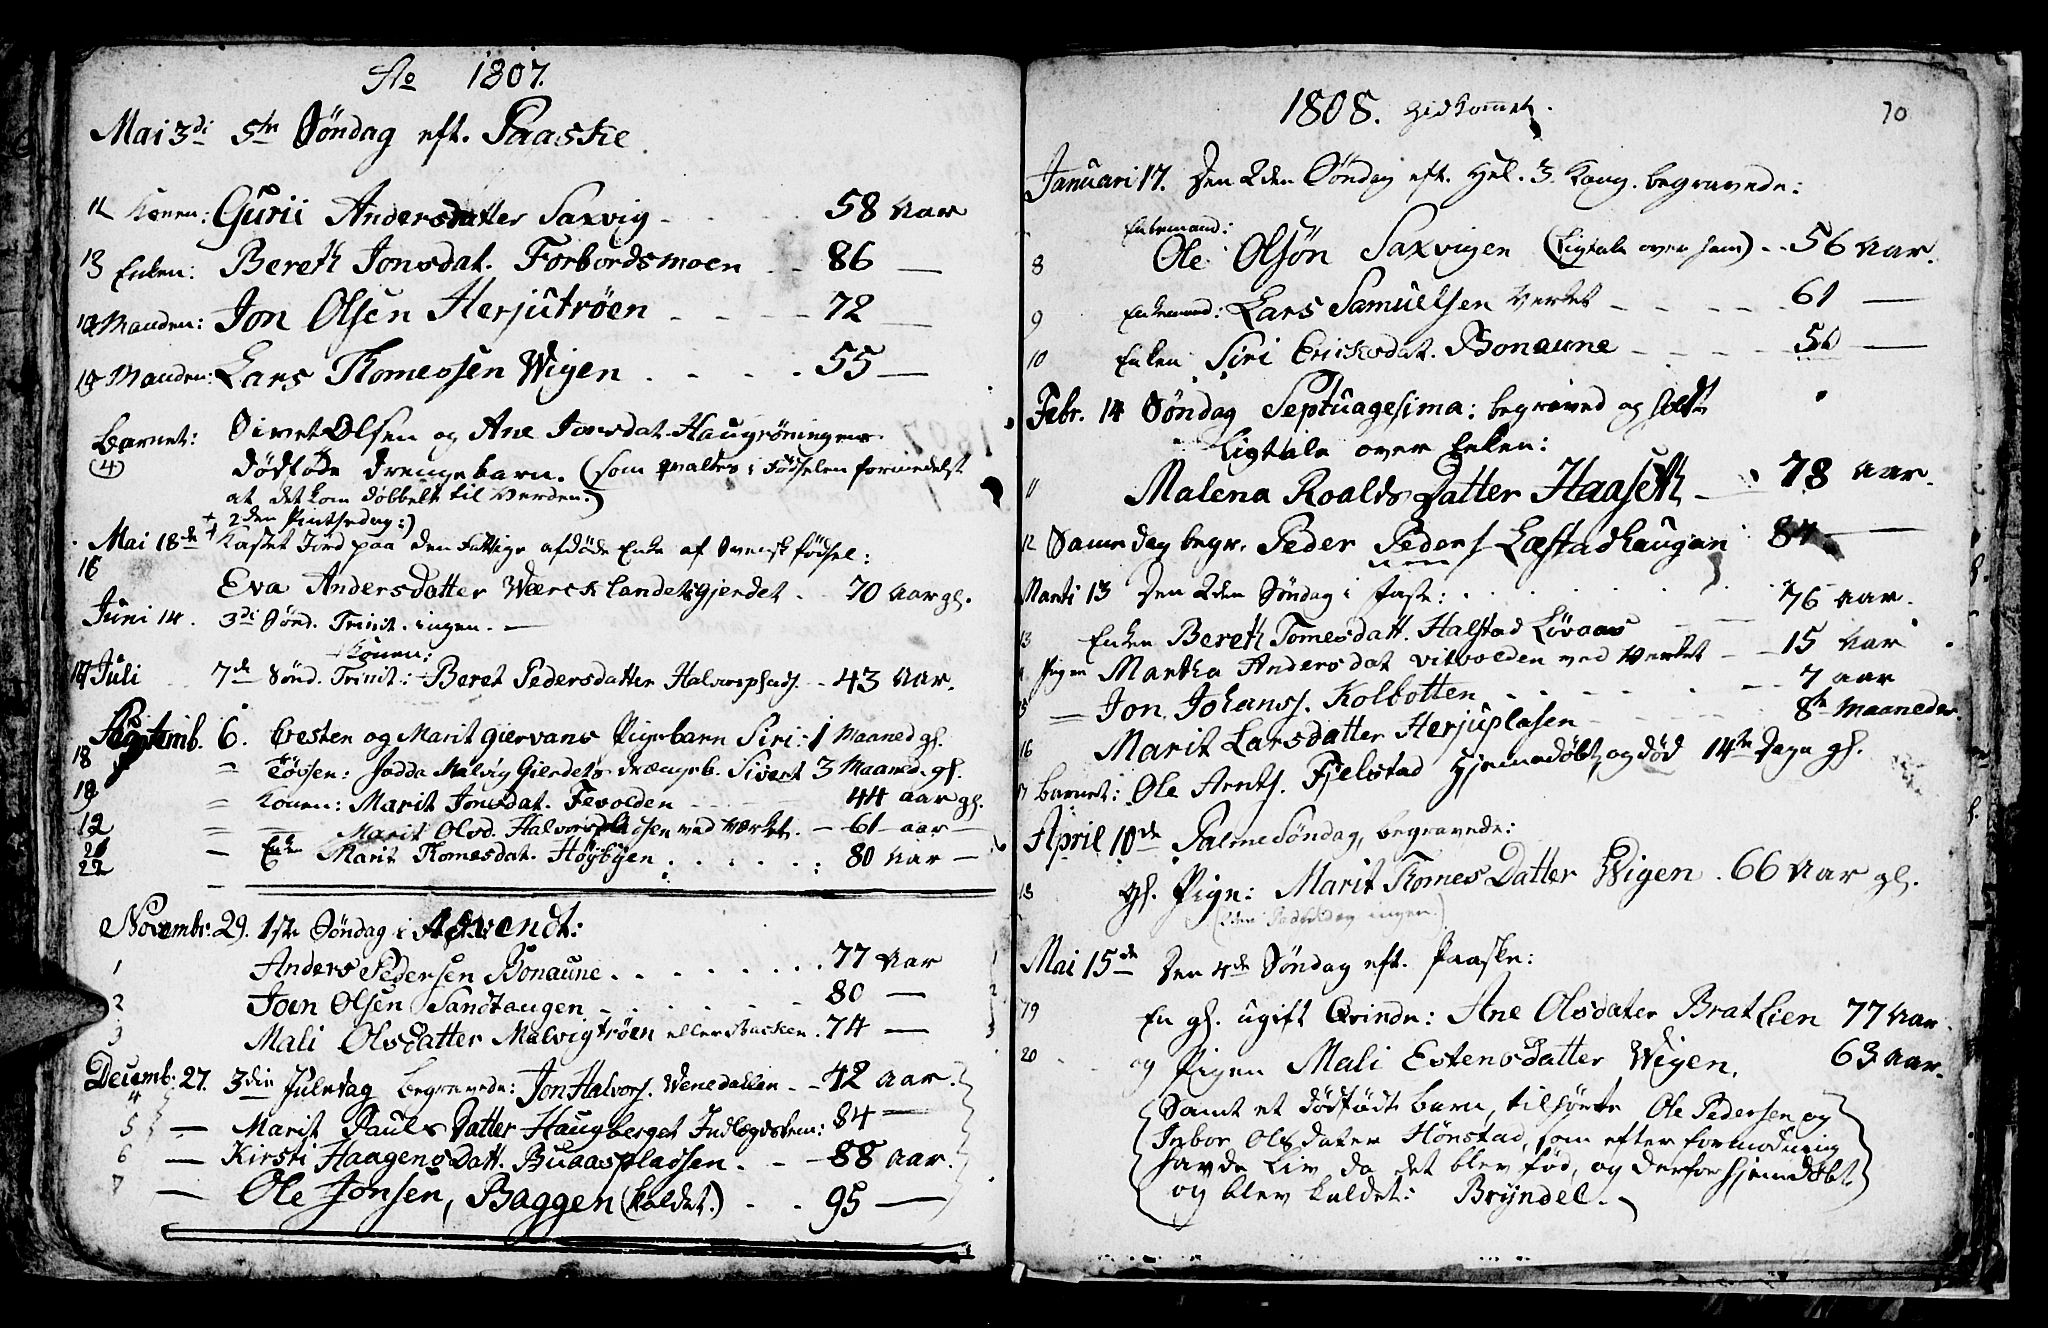 Ao 1807.
Mai 3di 5te Søndag eft. Paaske.
12 Konen: Gurii Andersdatter Saxvig - 58 Aar
13 Enken: Bereth Jonsdat. Forbordsmoen - - 86 —
Manden: Jon Olsen Herjutrøen - - - - 72 —
Manden: Lars Thomessen Wigen . - - . 55 —
Barnet: Sivert Olsen og Ane Jonsdat. Haugrøningens
(4) dödföde Drengebarn. (som qvaltes i Födselen formedelst
at det kom dobbelt til Verden.)
2den Pintsedag:)
Mai 18de Kastet Jord paa den Fattige afdöde Enke af Svensk födsel:
16 Eva Andersdatter Wærcklandetsgjerdet - 70 Aar gl.
Juni 14. 3di Sønd. Trinit. ingen. —
Konen:
17 Juli 7de Sønd. Trinit.: Beret Pedersdatter Halvorsplads. - 43 Aar.
Septemb. 6. Eesten og Marit Giervans Pigebarn Siri: 1 Maaned gl.
18 = Tøssen: Malvig Gierdets Drengeb. Sivert 3 Maaned. gl.
18 = Konen: Marit Jonsdat. Fevolden - - - 44 aar gl.
12 = — Marit Olsd. Halvorspladsen ved Værket. - 61 - aar —
21
22 — Enke Marit Thomesdat. Höybyen . . . . . : 80 Aar —
Novembr. 29. 1ste Søndag i Advendt:
1 Anders Pedersen Bonaune . . . . . . . 77 Aar 1
2 Joen Olsen Sandhaugen - . . . . - 80 — 2
3 Mali Olsdatter Malvigtrøen eller Backen . 74 — 3
Decemb. 27. 3die Juledag begravede: Jon Halvors. Venedallen - - 42 aar.
4
5 — Marit Pauls Datter Haugberget Indlægdslem: 84 —
6 — Kirsti HaagensDatt. Buaaspladsen. - - 88 aar.
7 — Ole Jonsen, Baggen (kaldet.) - . . 95 —
1808. Hidkommet. 70
Januari 17. Den 2den Søndag eft. Hel. 3. Kong. begravede:
Enkemand:
8 Ole Olsøn Saxvigen (Ligtale over ham) - - 56 Aar.
9 Enkemand: Lars Samuelsen Verket - - - - - 61 —
10 Enken Siri Ericksdat. Bonaune - - - - 50 —
Febr. 14 Søndag Septuagesima: begraved og holdt
Ligtale over Enken:
11 Malena Roalds Datter Haaseth - . 78 aar.
12 Samme dag begr. Peder Peders. Læstadhaugan 84 —
Marti 13 Den 2den Søndag i Faste: . . . . . . .
76 aar.
13 Enken Bereth Tomesdatt. Halstad Løvaas - —
Pigen Martha Andersdat Vitvolden ved Verket - - 15 Aar
15 = Jon Johanss. Kolbotten . . . . . . - 7 aar
16 Marit Larsdatter Herjuplasen - - - - 8te Maaneder.
17 Barnet: Ole Arnts. Fjelstad Hjemmedøbt og død 14ten Dage gl.
April 10de Palme Søndag, begravede:
18 gl. Pige: Marit Thomes Datter Wigen . 66 Aar gl.
(2den Paaskedag ingen.)
Mai 15de Den 4de Søndag eft. Paaske:
19 En gl. ugift Qvinde: Ane Olsdater Bratlien 77 Aar.
20 og Pigen Mali Estensdatter Wigen. 63 aar.
Samt et dödfödt Barn, tilhörte Ole Pedersen og
Ingbor Olsdater Hönstad, som efter formodning
havde Liv, da det blev föd, og derfor hjemdøbt
og blev kaldet: Bryndel. -